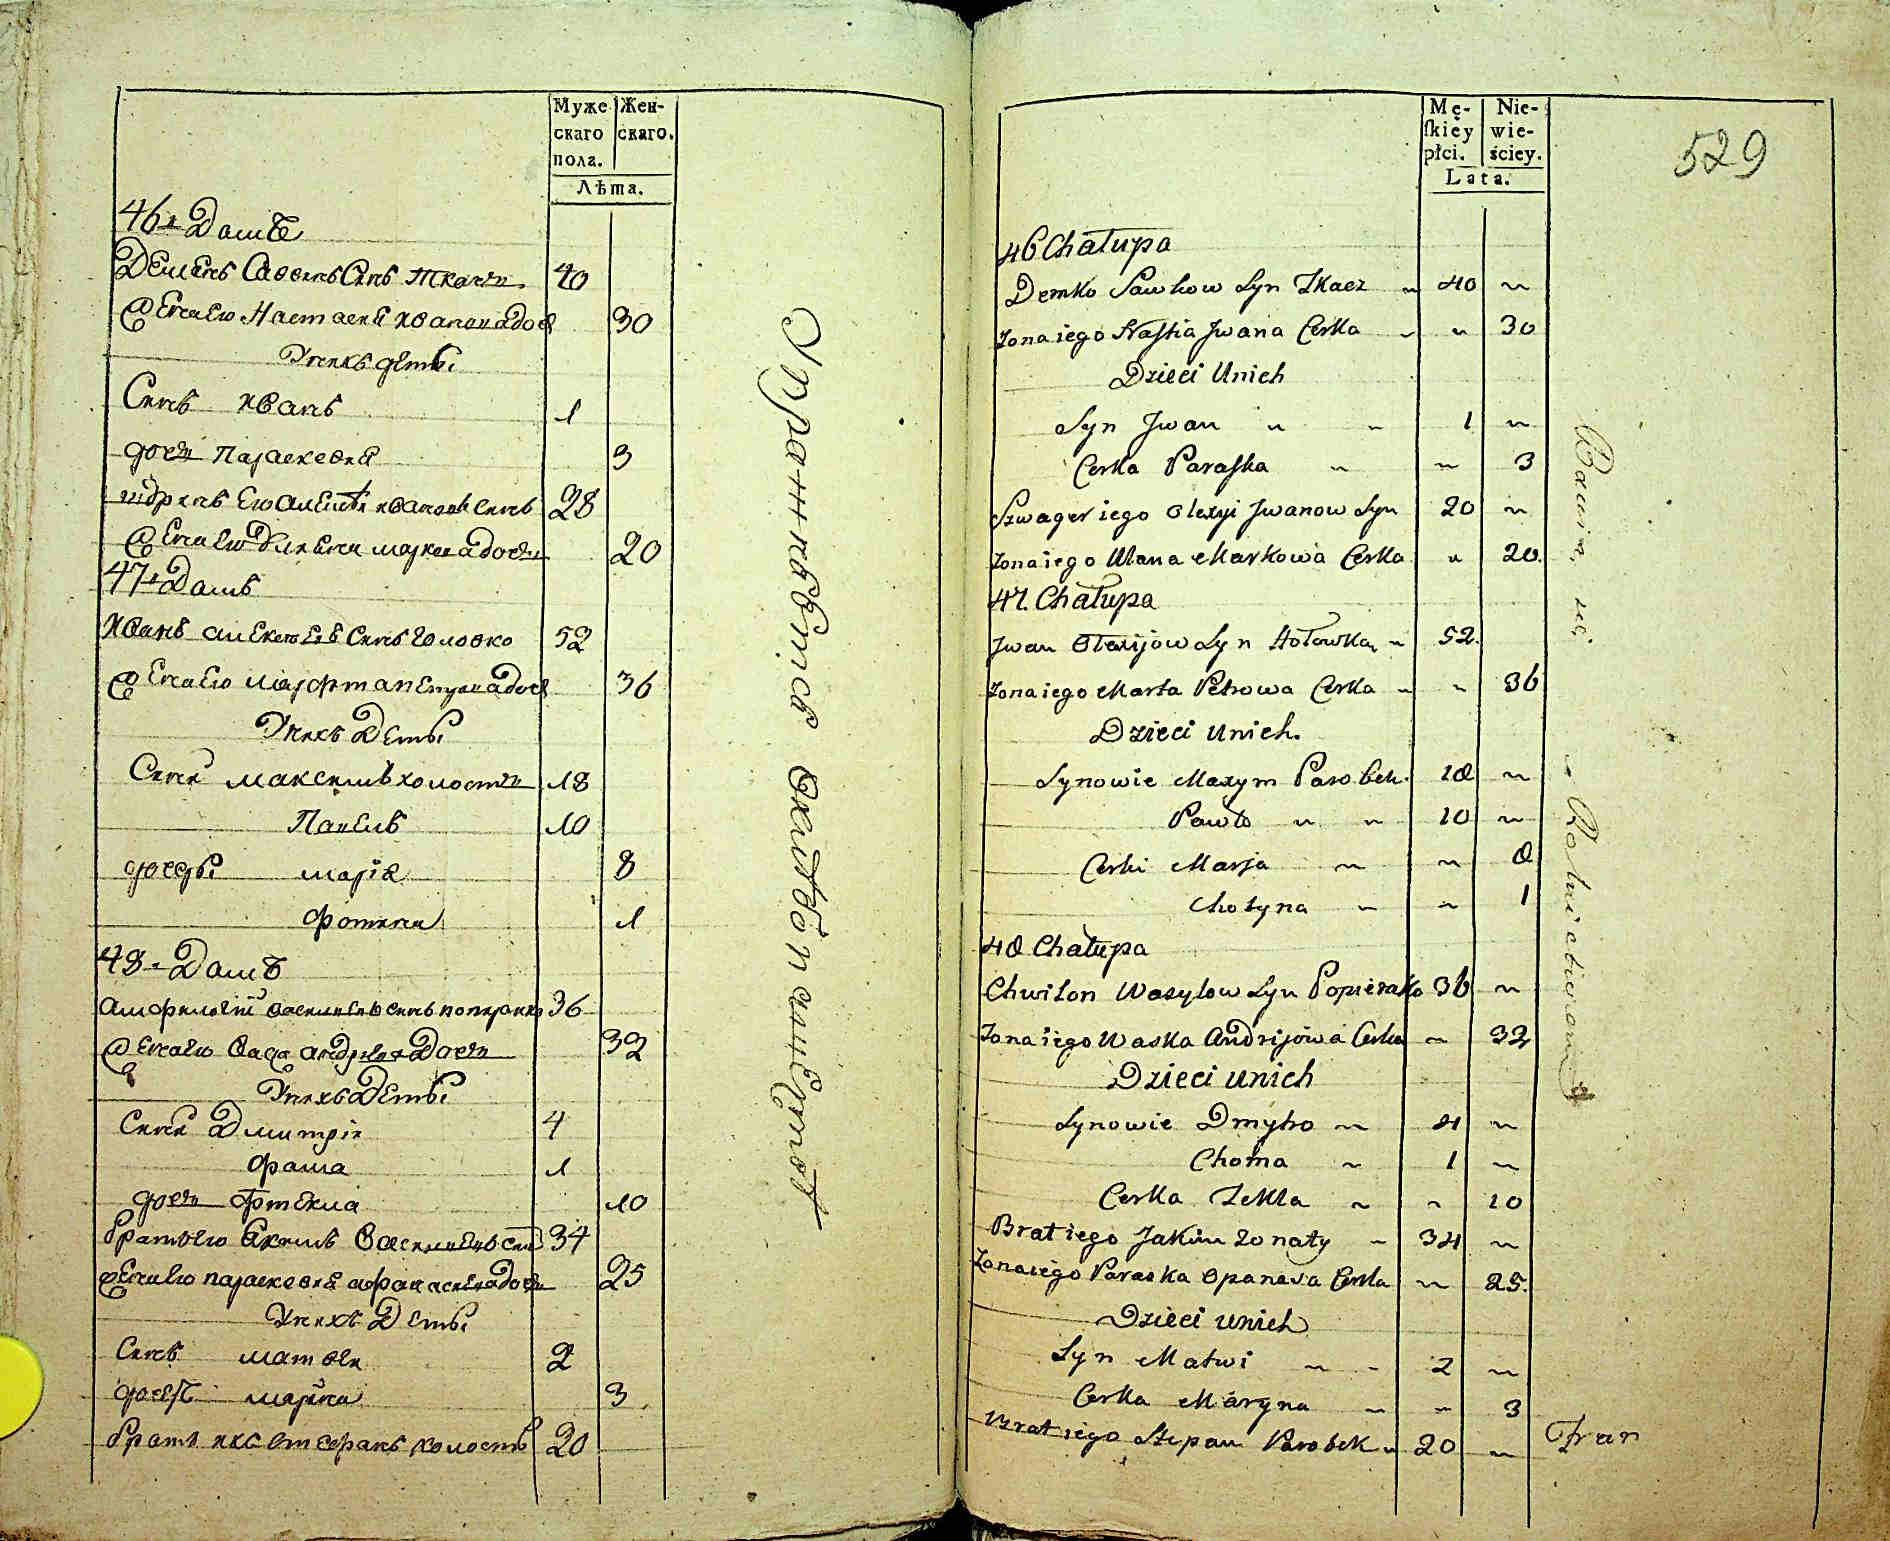 Муже
скаго
пола.
Жен-
скаго.
Лѣта.
46 Домъ
Демянъ Савинъ Снъ Ткачъ 40
Жена Его Настасия Иванова доч 30
У нихъ дети
Синъ Иванъ 1
дочь Параскевия 3
шуринъ Его Алексѣй Ивановъ Синъ 28
Жена Его Улияна Маркова дочь 20
47 Домъ
Иванъ Алексеевъ Синъ Головко 52
Жена Его Марфа Петрова доч 36
У нихъ Дети
Сини Максимъ холостъ 18
Павелъ 10
дочери Мария 8
Фотина 1
48 Домъ
Амфилогий Василиевъ Синъ Поперако 36
Жена Его Васа Андриева Дочъ 32
У нихъ Дети
Сини Дмитрий 4
Фома 1
дочъ Фтекла 10
братъ его Якимъ Василиевъ Синъ 34
Жена Его Параскевия Афанасиева Дочъ 25
У нихъ Дети
Синъ Матвей 2
дочь Марина 3
братъ ихъ Стефанъ холостъ 20
Mę-
skiey
płci.
Nie-
wie-
ściey.
Lata.
529
46 Chałupa
Demko Sawkow Syn Tkacz 40
Zona iego Nastia Jwana Corka 30
Dzieci Unich
Syn Jwan 1
Corka Paraska 3
Szwagier iego Olexyi Jwanow Syn 20
Zona iego Ulana Markowa Corka 20
47. Chałupa
Jwan Olexijow Syn Hołowka 52.
Zona iego Marta Petrowa Corka 36
Dzieci Unich.
Synowie Maxym Parobek 18
Pawło 10
Corki Marja 8
Chotyna 1
48 Chałupa
Chwilon Wasylow Syn Popierako 36
Zona iego Waska Andrijowa Corka 32
Dzieci unich
Synowie Dmytro 4
Choma 1
Corka Tekla 10
Brat iego Jakim zonaty 34
Zona iego Paraska Opanasa Corka 25.
Dzieci unich
Syn Matwi 2
Corka Maryna 3
Brat iego Stepan Parobek 20
Fran